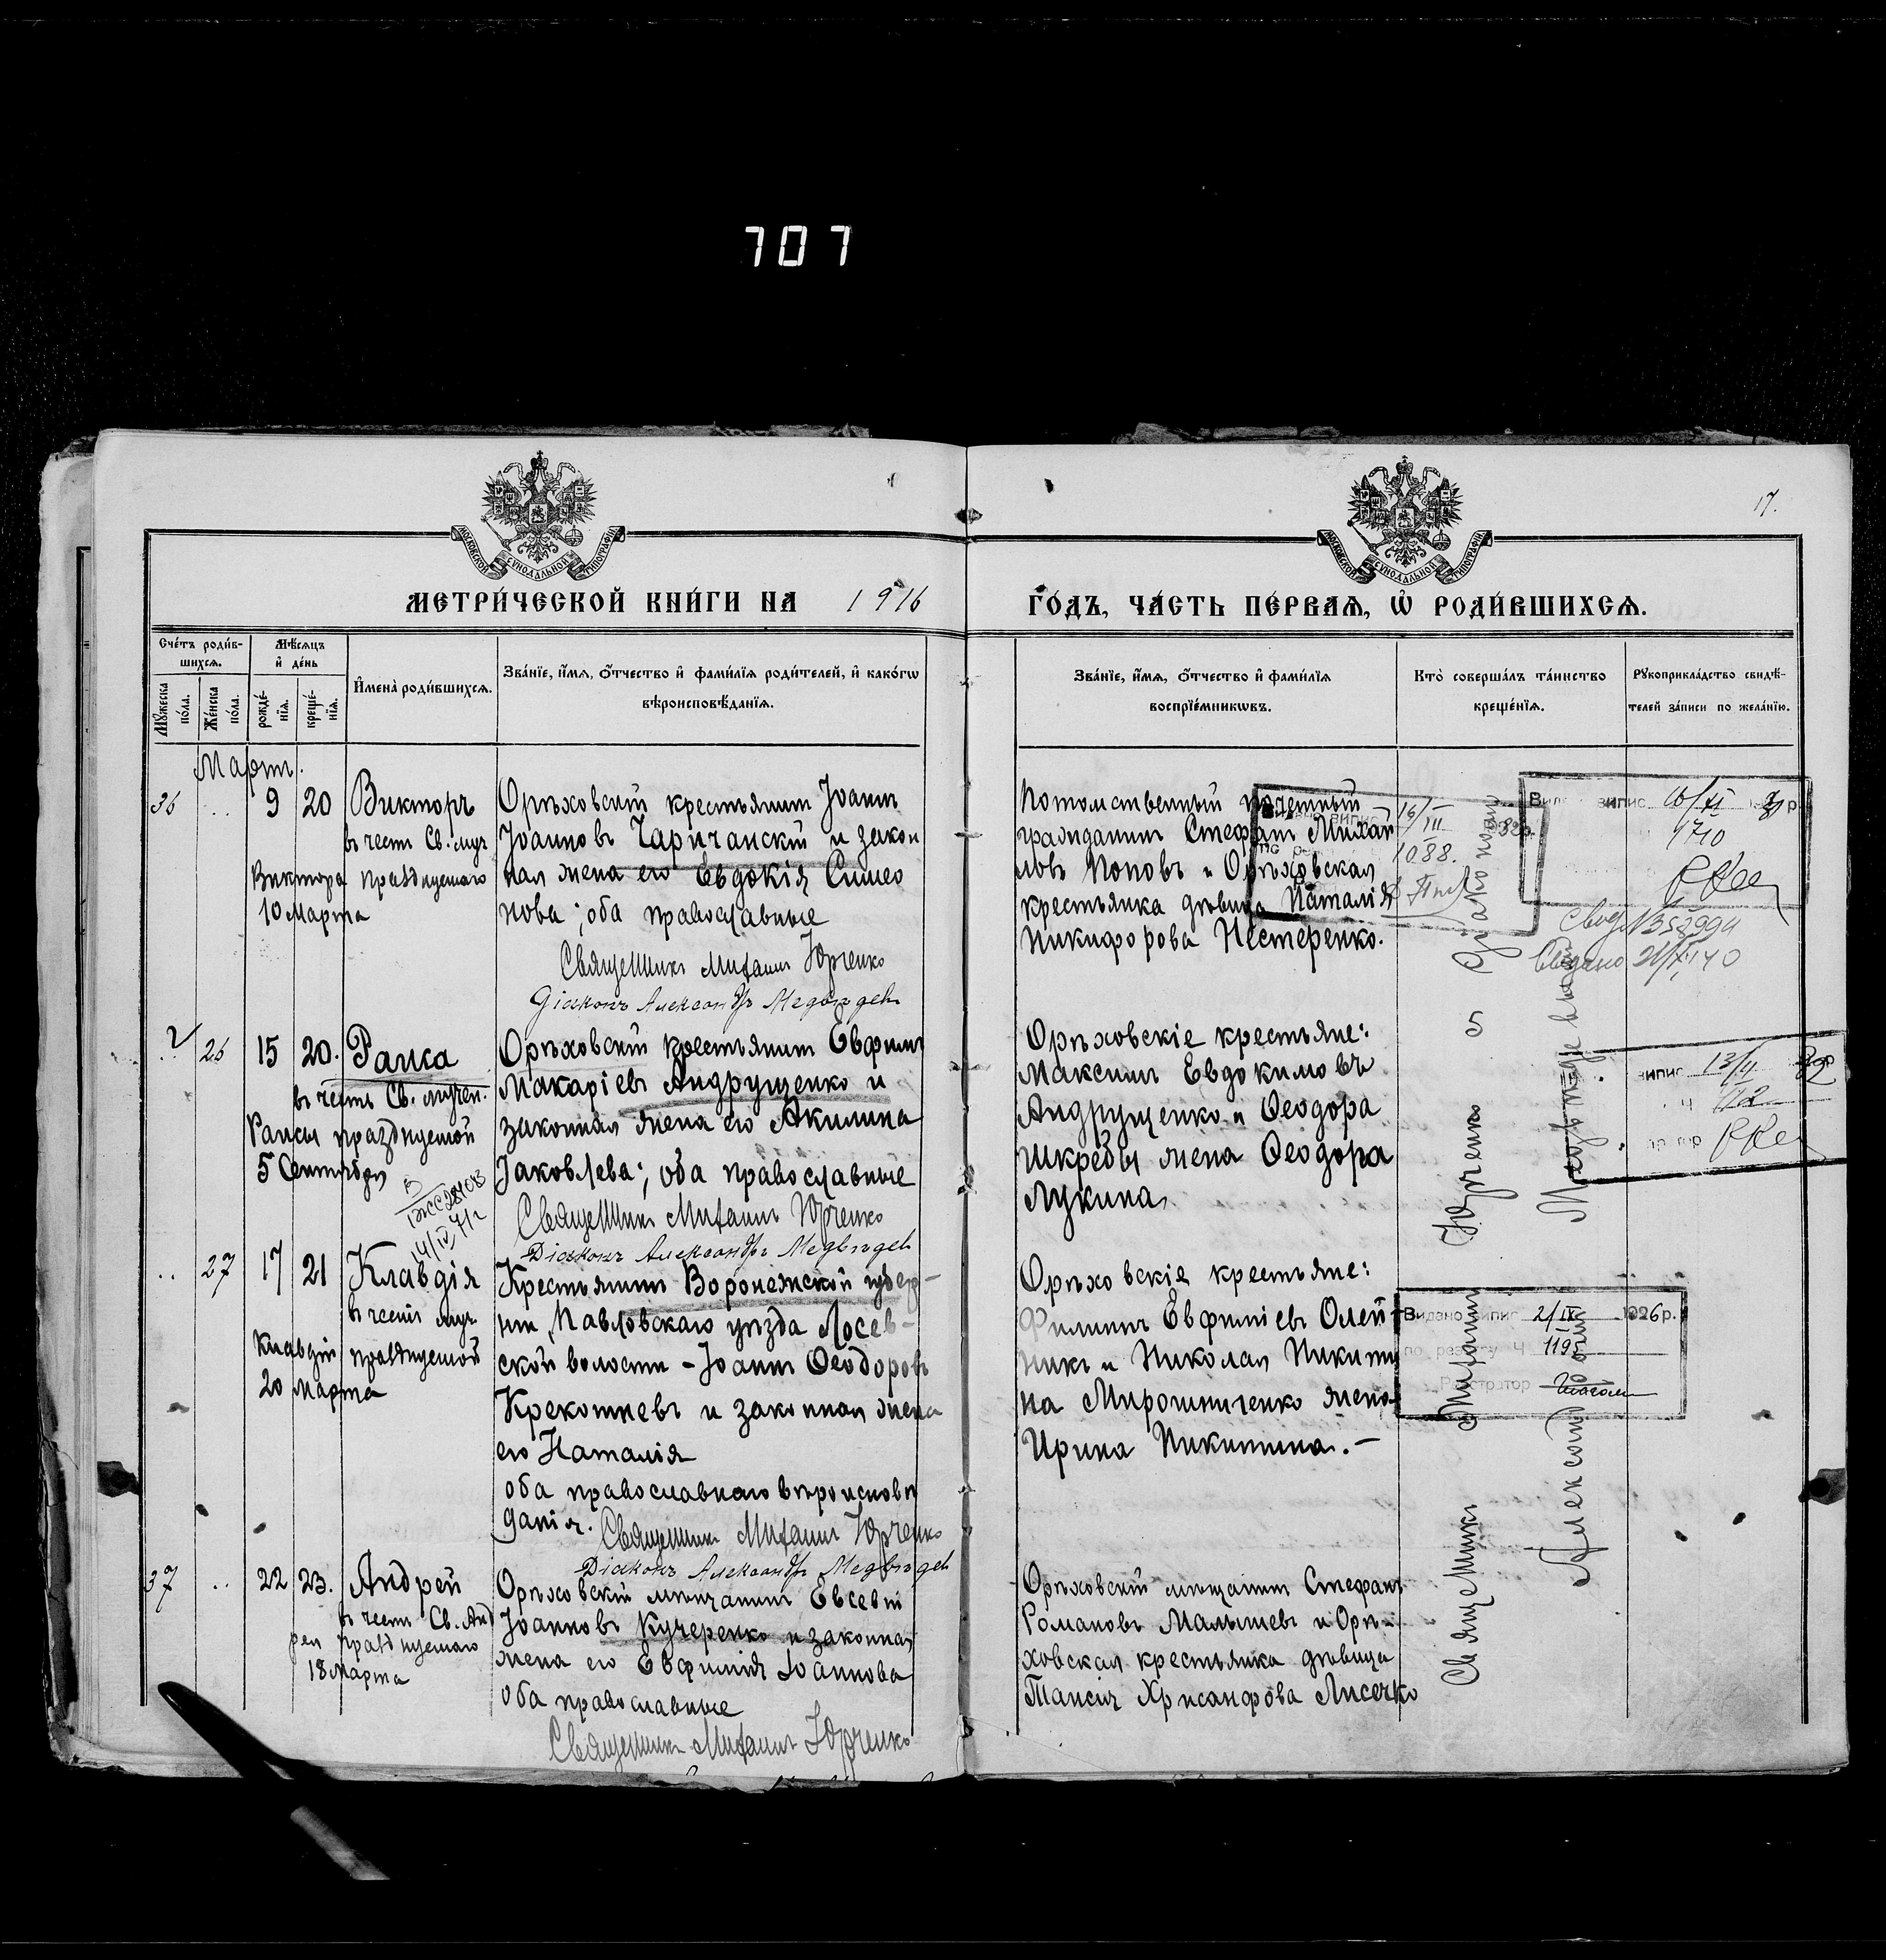 707
17.
МОСКОВСКОЙ СѴНОДАЛЬНОЙ ТИПОГРАФІИ
МОСКОВСКОЙ СѴНОДАЛЬНОЙ ТИПОГРАФІИ
МЕТРИ́ЧЕСКОЙ КНИ́ГИ НА 1916
ГО́ДЪ, ЧА́СТЬ ПЕ́РВАѦ, Ѡ҆ РОДИ́ВШИХСѦ.
Сче́тъ роди́в-
шихсѧ.
Мꙋ́жеска по́ла.
Же́нска по́ла.
Мѣ́сѧцъ
и҆ де́нь
рожде́-
нїѧ.
креще́-
нїѧ.
И҆мена̀ роди́вшихсѧ.
Зва́нїе, и҆́мѧ, ѻ҆́тчество и҆ фами́лїѧ роди́телей, и҆ како́гѡ
вѣроисповѣ́данїѧ.
Зва́нїе, и҆́мѧ, ѻ҆́тчество и҆ фами́лїѧ
воспрїе́мникѡвъ.
Кто̀ соверша́лъ та́инство
креще́нїѧ.
Рꙋкоприкла́дство свидѣ́-
телей за́писи по жела́нїю.
Мартъ.
36 .. 9 20 Викторъ
въ честь Св. муч
Виктора празднуемаго
10 Марта
Орѣховскій крестьянинъ Іоаннъ
Іоанновъ Чаричанскій и закон
ная жена его Евдокія Симео
нова; оба православные
Священникъ Михаилъ Юрченко
Діаконъ Александръ Медвѣдевъ
Потомственный почетный
гражданинъ Стефанъ Михаи
ловъ Поповъ и Орѣховская
крестьянка дѣвица Наталія
Никифорова Нестеренко.
16/III
1088.
1710
Видано
26 15 20. Раиса
въ честь Св. мучен.
Раисы празднуемой
5 Сентября
14/IV
Орѣховскій крестьянинъ Евфимъ
Макаріевъ Андрущенко и
законная жена его Акилина
Іаковлева; оба православные
Священникъ Михаилъ Юрченко
Діаконъ Александръ Медвѣдевъ
Орѣховскіе крестьяне:
Максимъ Евдокимовъ
Андрущенко и Ѳеодора
Шкреды жена Ѳеодора
Лукина
.. 27 17 21 Клавдія
въ честь муч.
Клавдіи празднуемой
20 Марта
Крестьянинъ Воронежской губер-
ніи, Павловскаго уѣзда Лосев-
ской волости - Іоаннъ Ѳеодоровъ
Крекотневъ и законная жена
его Наталія
оба православнаго вѣроисповѣ
данія. Священникъ Михаилъ Юрченко
Діаконъ Александръ Медвѣдевъ
Орѣховскіе крестьяне:
Филиппъ Евфиміевъ Олей
никъ и Николая Никити
на Мирошниченко жена
Ирина Никитина. -
Видано випис 2/IX 1926 р.
по реєстру Ч 1195
Реєстратор
37 .. 22 23. Андрей
въ честь Св. Анд
рея празднуемаго
18 Марта
Орѣховскій мѣщанинъ Евсевій
Іоанновъ Кучеренко и законная
жена его Евфимія Іоаннова
оба православные
Священникъ Михаилъ Юрченко
Орѣховскій мѣщанинъ Стефанъ
Романовъ Малышевъ и Орѣ-
ховская крестьянка дѣвица
Таисія Хрисанфова Лисечко
Священникъ Михаилъ Юрченко